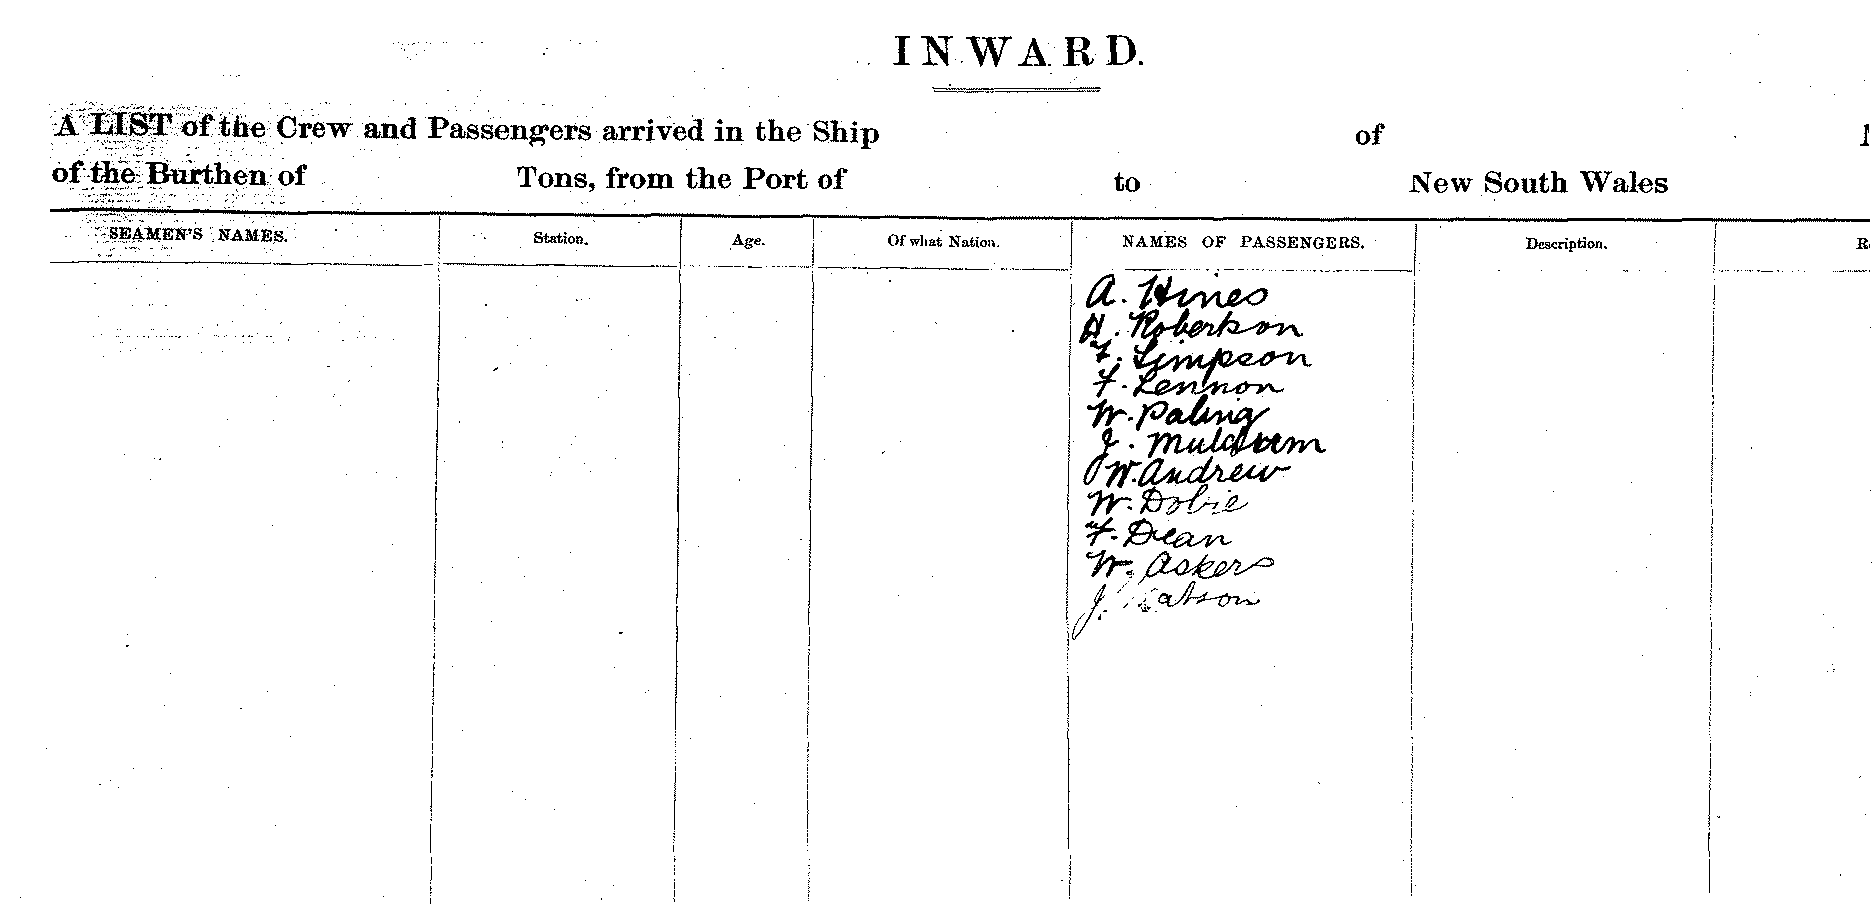 INWARD.
A LIST of the Crew and Passengers arrived in the Ship of
of the Burthen of Tons, from the Port of to New South Wales
SEAMEN'S NAMES. Station. Age. Of what Nation. NAMES OF PASSENGERS. Description.
A. Hines
H. Robertson
F. Simpson
F. Lennon
W. Paling
J.
W. Andrew
W. Dobie
F. Dean
W. Askers
J. Watson